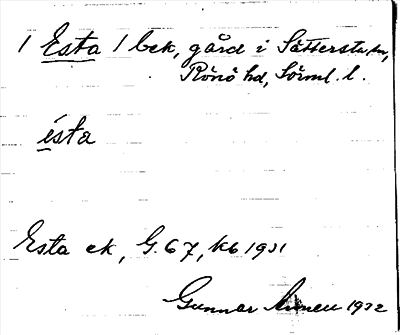 1 Esta / bek, gård i Sättersta sn,
Rönö hd, Sörml. l.
ésta
Esta ek, G. 67, kb 1931
Gunnar 1932